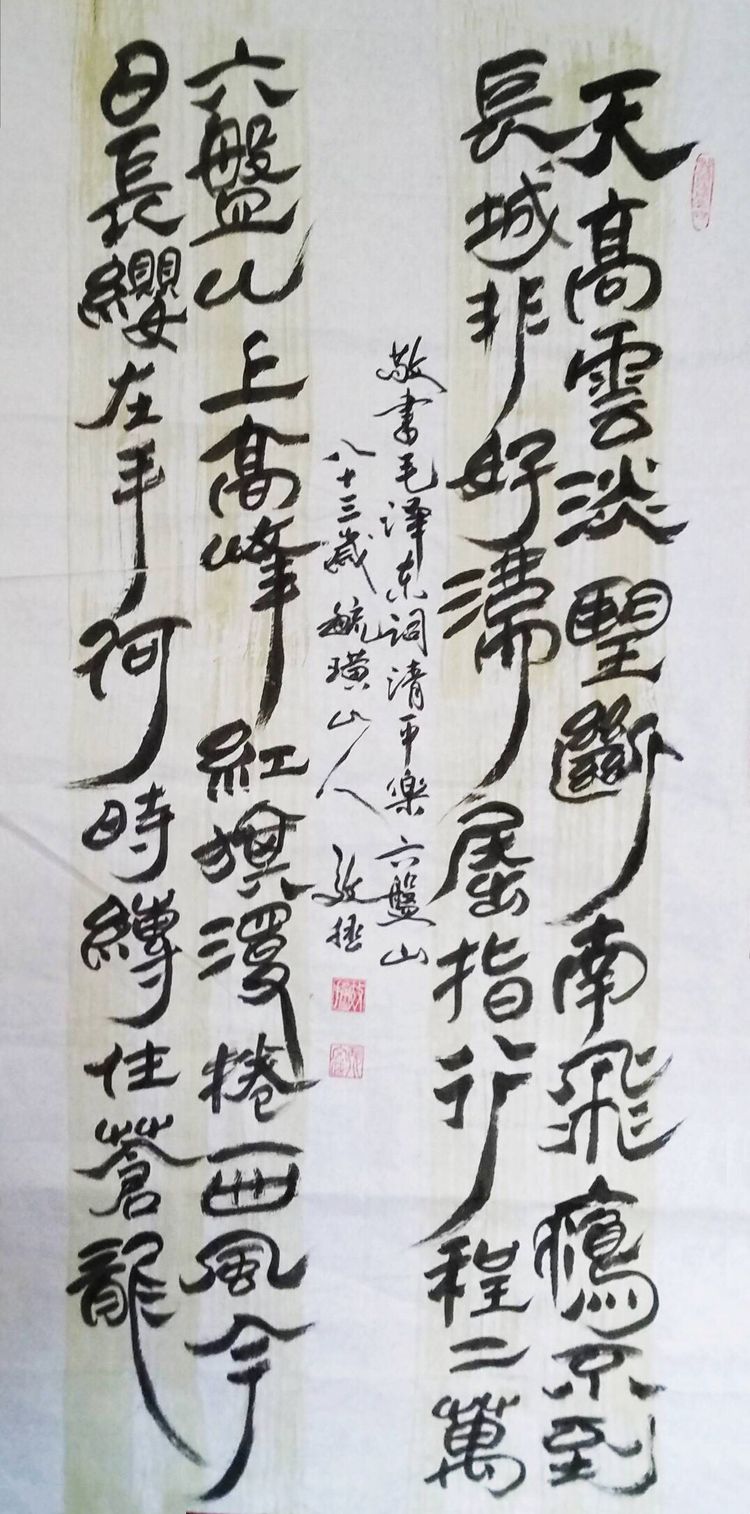 天高雲淡朢斷南飛鴈不到
長城非好漢屈指行程二萬
敬書毛泽东词清平樂 六盤山
八十三歲毓璜山人
六盤山上高峰紅旗漫捲西風今
日長纓在手何時縛住蒼龍